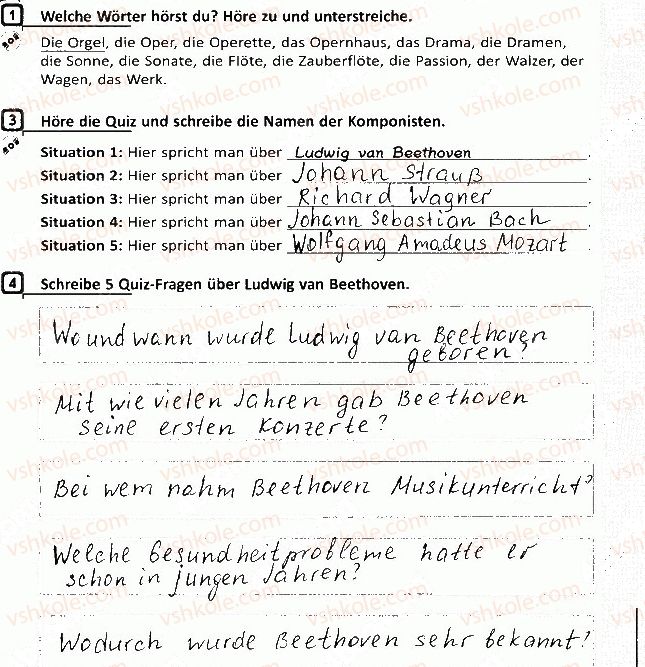 1 Welche Wörter hörst du? Höre zu und unterstreiche.
Die Orgel, die Oper, die Operette, das Opernhaus, das Drama, die Dramen,
die Sonne, die Sonate, die Flöte, die Zauberflöte, die Passion, der Walzer, der
Wagen, das Werk.
3 Höre die Quiz und schreibe die Namen der Komponisten.
Situation 1: Hier spricht man über Ludwig van Beethoven.
Situation 2: Hier spricht man über Johann Strauß.
Situation 3: Hier spricht man über Richard Wagner.
Situation 4: Hier spricht man über Johann Sebastian Bach.
Situation 5: Hier spricht man über Wolfgang Amadeus Mozart.
4 Schreibe 5 Quiz-Fragen über Ludwig van Beethoven.
Wo und wann wurde Ludwig van Beethoven
geboren?
Mit wie vielen Jahren gab Beethoven
seine ersten Konzerte?
Bei wem nahm Beethoven Musikunterricht?
Welche Gesundheitprobleme hatte er
schon in jungen Jahren?
Wodurch wurde Beethoven sehr bekannt?
vshkole.com